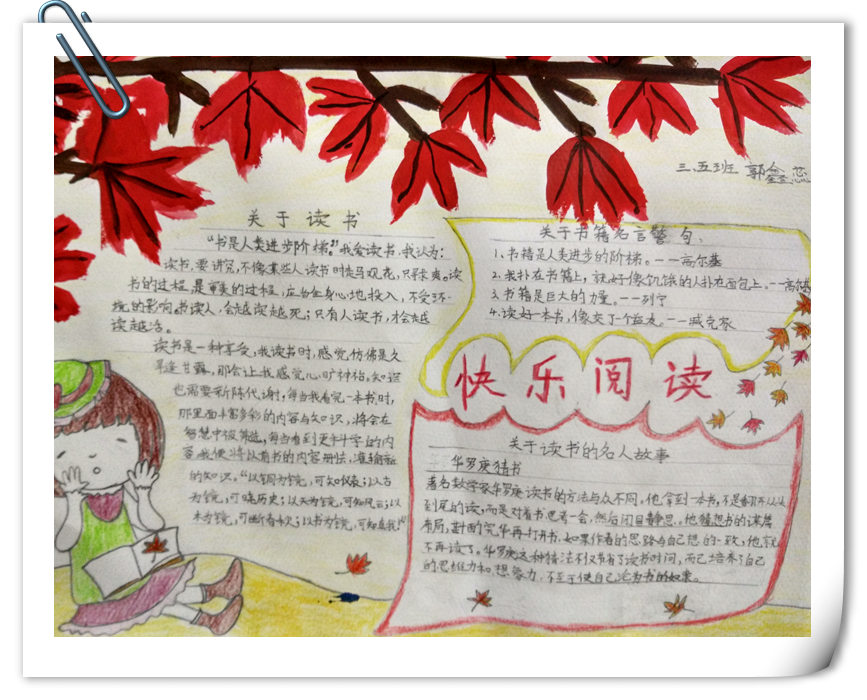 三、五班 郭鑫蕊
关于读书
“书是人类进步阶梯。”我爱读书,我认为:
读书,要讲究,不像某些人读书时走马观花,只寻求爽。读
书的过程是审美的过程,应当全身心地投入,不受环
境的影响。书读人,会越读越死;只有人读书,才会越
读越活。
读书是一种享受,我读书时,感觉仿佛是久
旱逢甘露,那会让我感觉心旷神怡。知识
也需要新陈代谢,每当我看完一本书时,
那里面丰富多彩的内容与知识,将会在
智慧中
每当看到更丰
的内
容,我便将以前书的内容
的知识。“以铜为镜,可知仪表;以古
为镜,可晓历史;以天为镜,可知风云;以
木为镜,可断春秋;以书为镜,可知真我。”
关于书籍名言警句:
1、书籍是人类进步的阶梯。——高尔基
2、我扑在书籍上,就好像饥饿的人扑在面包上。——高尔基
3、书籍是巨大的力量。——列宁
4、读好一本书,像交了个益友。——臧克家
快乐阅读
关于读书的名人故事
华罗庚猜书
著名数学家华罗庚读书的方法与众不同。他拿到一本书,不是翻开从头
到尾的读,而是对着书思考一会,然后闭目静思。他猜想书的谋篇
布局,斟酌完毕再打开书,如果作者的思路与自己想的一致,他就
不再读了。华罗庚这种猜法不仅节省了读书时间,而已培养了自己
的思维力和想象力,不至于使自己沦为书的奴隶。